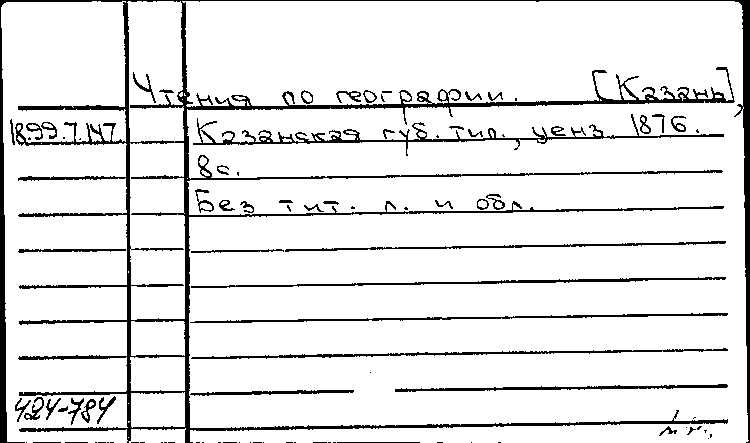 Чтения по географии. [Казань],
1899.7.147. Казанская губ. тип., ценз. 1876.
8с.
Без тит. л. и обл.
424-784